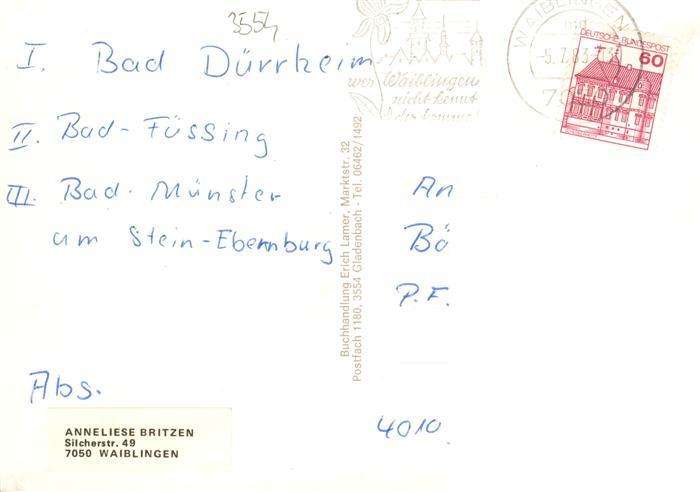 3554
I. Bad Dürrheim
II. Bad-Füssing
III. Bad-Münster
am Stein-Ebernburg
Abs.
ANNELIESE BRITZEN
Silcherstr. 49
7050 WAIBLINGEN
Buchhandlung Erich Lamer, Marktstr. 32
Postfach 1180, 3554 Gladenbach - Tel. 06462/1492
wer Waiblingen
nicht kennt
WAIBLINGEN
-5.7.83
DEUTSCHE BUNDESPOST
60
An
Bö
P.F.
4010